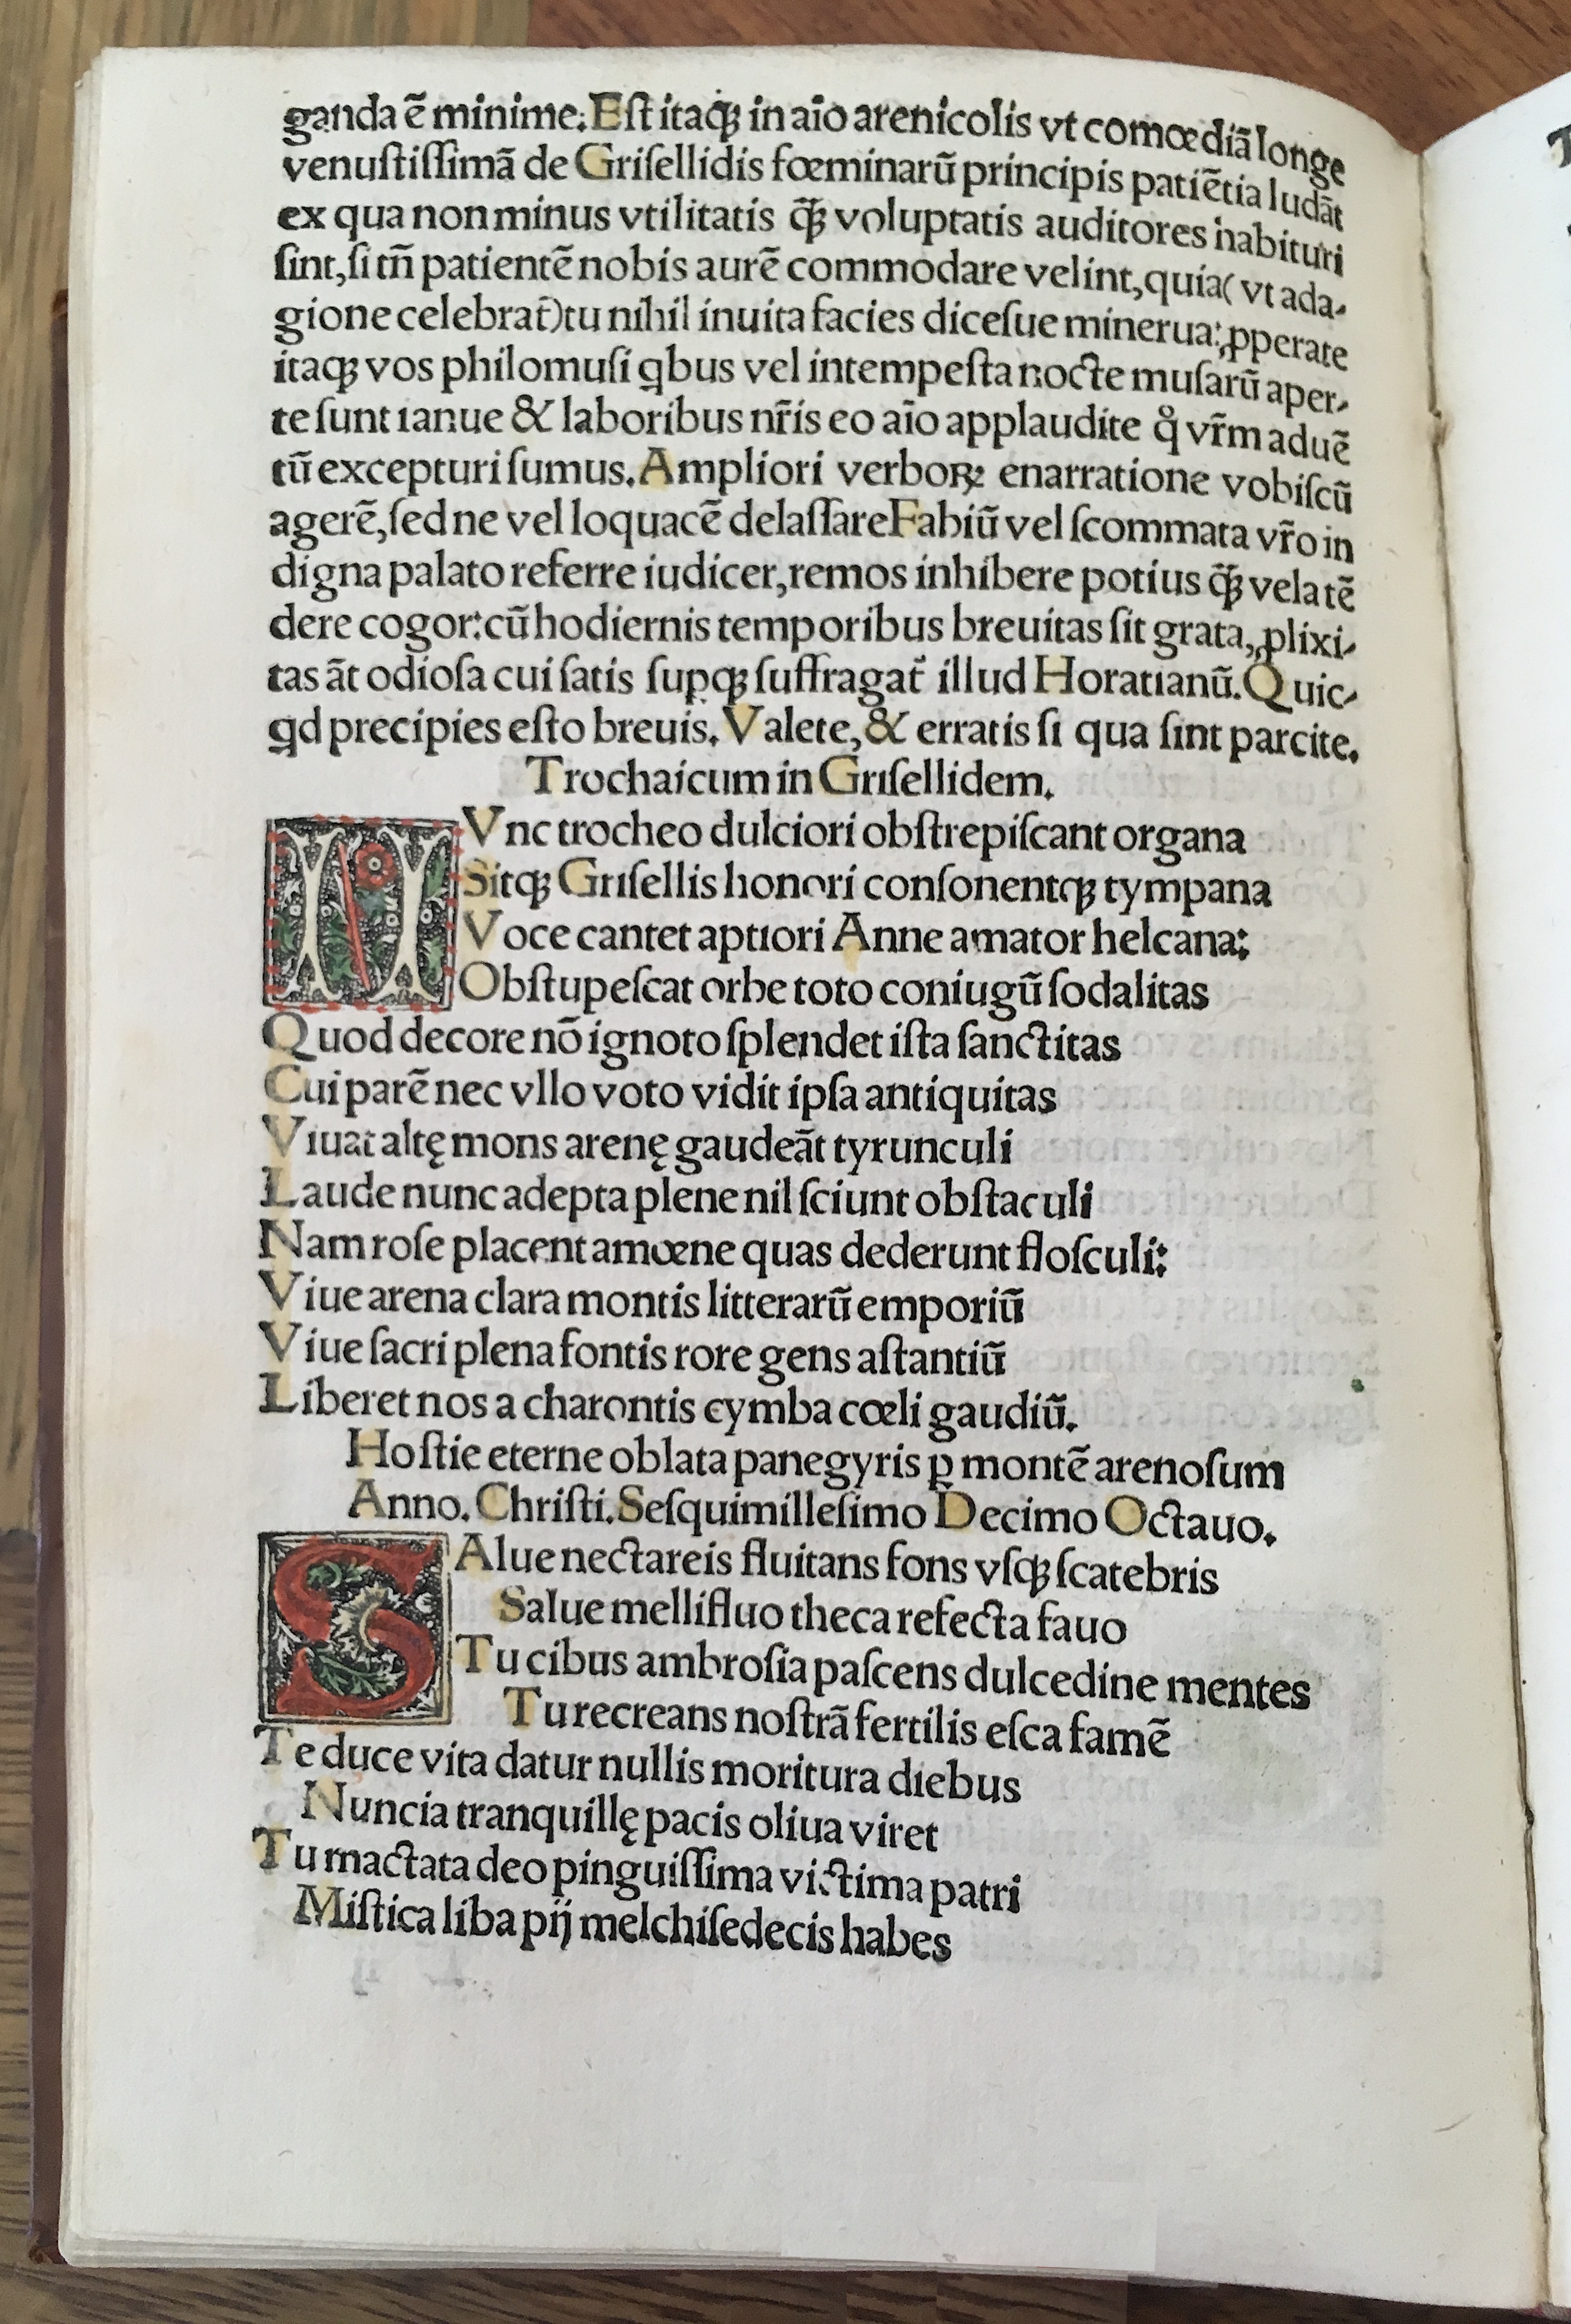 ganda ē minime. Eſt itaqꝫ in aīo arenicolis vt comœdiā longe
venuſtiſſimā de Griſellidis fœminarū principis patiētia ludāt
ex qua non minus vtilitatis q̄ꝫ voluptatis auditores habituri
ſint, ſi tn̄ patientē nobis aurē commodare velint, quia( vt ada-
gione celebrat̄) tu nihil inuita facies diceſue minerua: ꝓperate
itaqꝫ vos philomuſi qbus vel intempeſta nocte muſarū aper-
te ſunt ianue & laboribus nr̄is eo aīo applaudite qͦ vr̄m aduē
tū excepturi ſumus. Ampliori verboꝝ enarratione vobiſcū
agerē, ſed ne vel loquacē delaſſare Fabiū vel ſcommata vr̄o in
digna palato referre iudicer, remos inhibere potius q̄ꝫ vela tē
dere cogor: cū hodiernis temporibus breuitas ſit grata, ꝓlixi-
tas āt odioſa cui ſatis ſupqꝫ ſuffragat̄ illud Horatianū. Quic-
qd precipies eſto breuis. Valete, & erratis ſi qua ſint parcite.
Trochaicum in Griſellidem.
NVnc trocheo dulciori obſtrepiſcant organa
Sitqꝫ Griſellis honori conſonentqꝫ tympana
Voce cantet aptiori Anne amator helcana:
Obſtupeſcat orbe toto coniugū ſodalitas
Quod decore nō ignoto ſplendet iſta ſanctitas
Cui parē nec vllo voto vidit ipſa antiquitas
Viuat altę mons arenę gaudeāt tyrunculi
Laude nunc adepta plene nil ſciunt obſtaculi
Nam roſe placent amœne quas dederunt floſculi:
Viue arena clara montis litterarū emporiū
Viue ſacri plena fontis rore gens aſtantiū
Liberet nos a charontis cymba cœli gaudiū.
Hoſtie eterne oblata panegyris ꝑ montē arenoſum
Anno. Chriſti. Seſquimilleſimo Decimo Octauo.
SAlue nectareis fluitans fons vſqꝫ ſcatebris
Salue mellifluo theca refecta fauo
Tu cibus ambroſia paſcens dulcedine mentes
Tu recreans noſtrā fertilis eſca famē
Te duce vita datur nullis moritura diebus
Nuncia tranquillę pacis oliua viret
Tu mactata deo pinguiſſima victima patri
Miſtica liba pij melchiſedecis habes